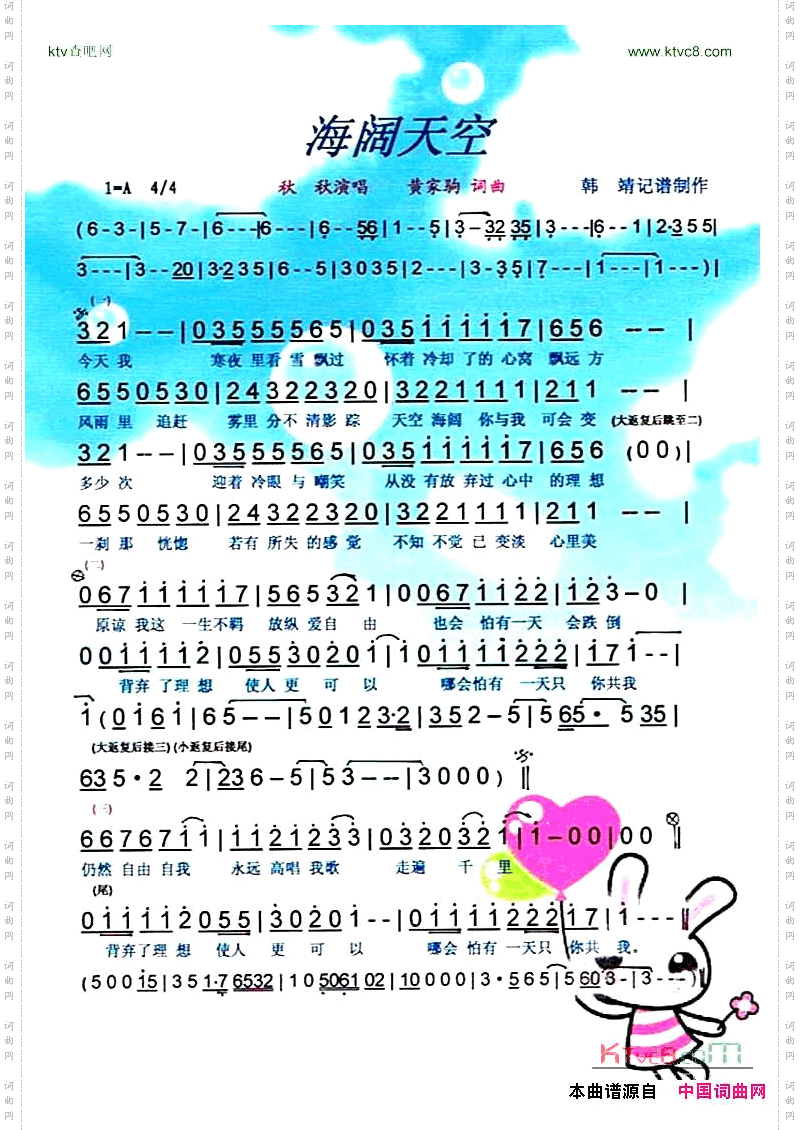 ktv查吧网 www.ktvc8.com
海阔天空
1=A 4/4 秋 秋演唱 黄家驹 词曲 韩 靖记谱制作
(6-3-|5-7-|6---|6---|6--56|1--5|3-32 35|3---|6--1|2·3 5 5|
3---|3--20|3·235|6--5|3035|2--3|2-3·5|7---|1---|1---)|
(一)
321--|0355 5565|035111117|656---|
今天我 寒夜 里看 雪 飘过 怀着 冷却 了的 心窝 飘远 方
65505030|24322320|2432 2111|211---|
风雨 里 追赶 雾里 分不 清影 踪 天空 海阔 你与我 可会 变 (大返复后跳至二)
321--|03555565|035111117|656 (00)|
多少 次 迎着 冷眼 与 嘲笑 从没 有放 弃过 心中 的理 想
65505030|24322320|24322111|211---|
一刹 那 恍惚 若有 所失 的感 觉 不知 不觉 已 变淡 心里美
(二)
067111117|565321|0067 1122|123-0|
原谅 我这 一生不羁 放纵 爱自 由 也会 怕有一天 会跌 倒
00111112|055302 01|1--0111 1222|171--|
背弃 了理 想 使人 更 可 以 哪会怕有 一天只 你共我
1(0161|65---|5 0123·2|352-5|565· 535|
(大返复后接三)(小返复后接尾)
635·2 2|236-5|53---|3000)‖
(三)
6676711|1121233|0320321|1-00|00‖
仍然 自由 自我 永远 高唱 我歌 走遍 千 里
(尾)
01111 2055|30201--|01111222 17|1---‖
背弃了理 想 使人 更 可 以 哪会 怕有 一天只 你共 我.
(50015|351·76532|1050610 2|10000|3·565|5603|3---)‖
KTVC8.COM
本曲谱源自 中国词曲网
词曲网